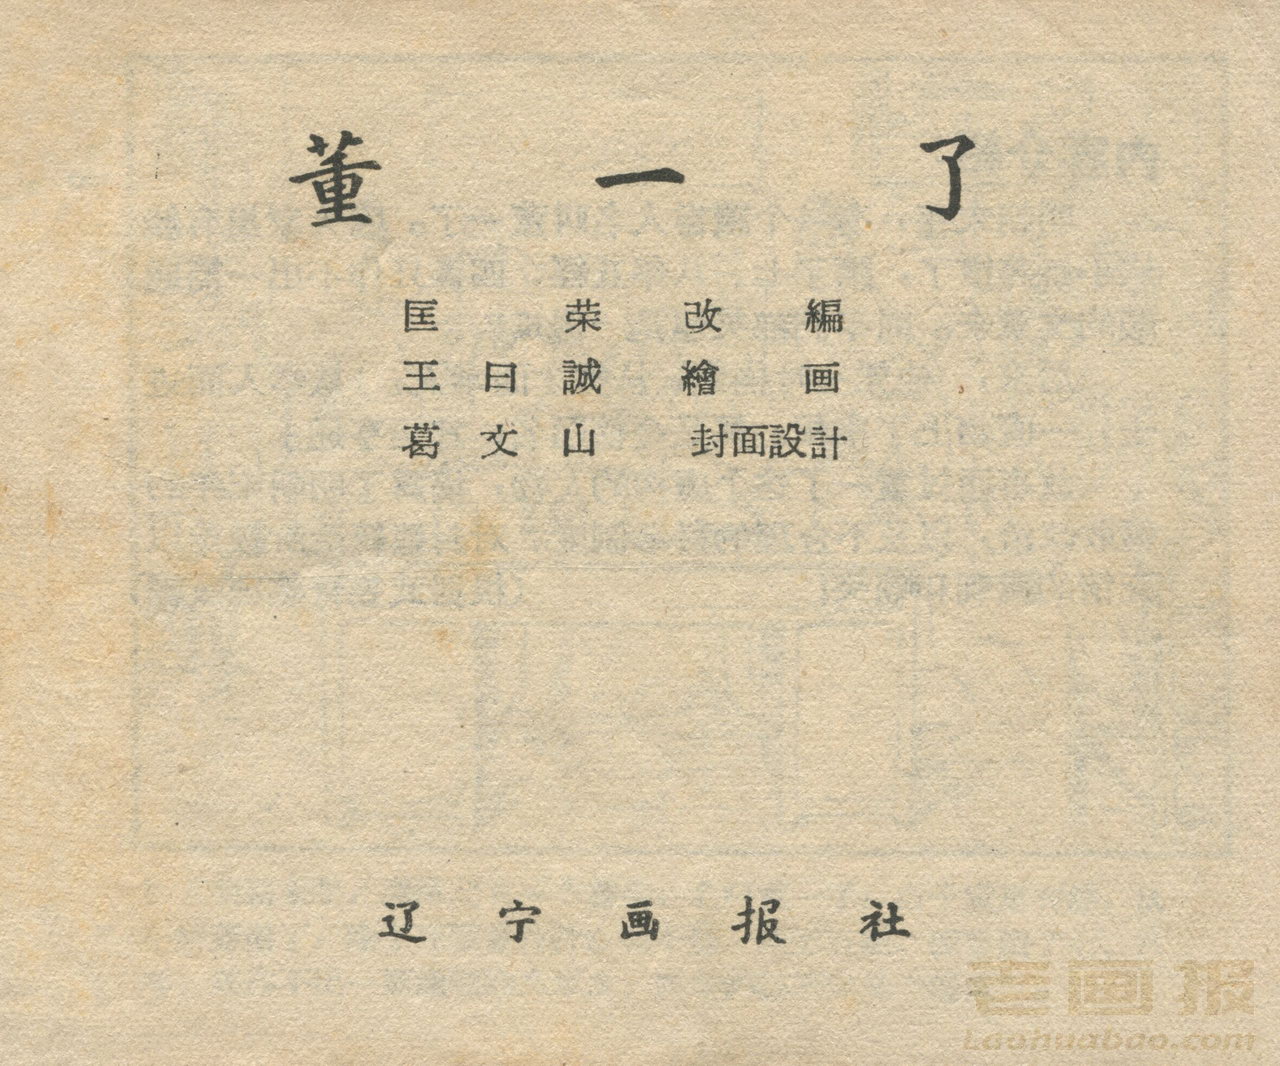 董一了
匡荣改編
王日誠繪画
葛文山 封面設計
辽宁画报社
老画报
Laohuabao.com